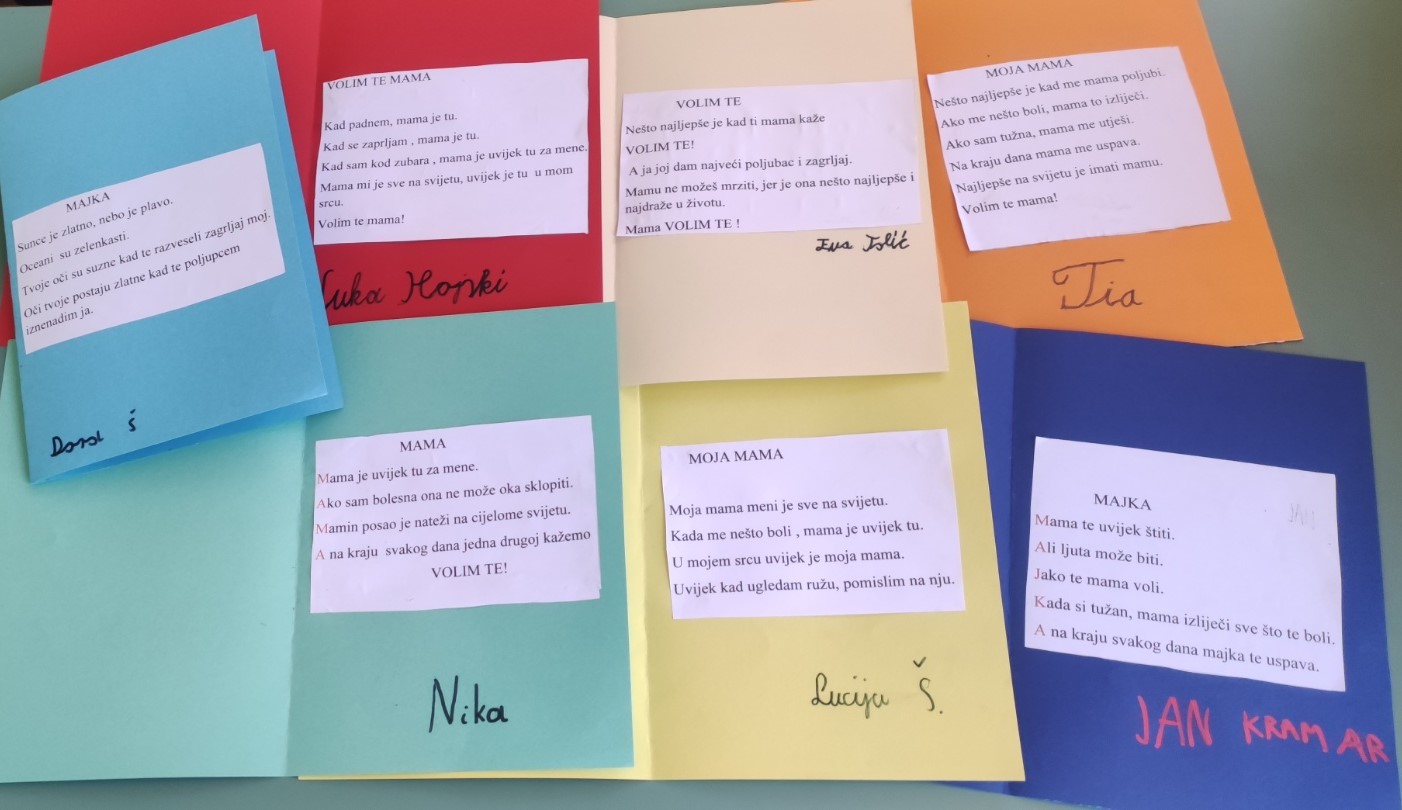 MAJKA
Sunce je zlatno, nebo je plavo.
Oceani su zelenkasti.
Tvoje oči su suzne kad te razveseli zagrljaj moj.
Oči tvoje postaju zlatne kad te poljupcem
iznenadim ja.
Dora Š
VOLIM TE MAMA
Kad padnem, mama je tu.
Kad se zaprljam , mama je tu.
Kad sam kod zubara , mama je uvijek tu za mene.
Mama mi je sve na svijetu, uvijek je tu u mom
srcu.
Volim te mama!
VOLIM TE
Nešto najljepše je kad ti mama kaže
VOLIM TE!
A ja joj dam najveći poljubac i zagrljaj.
Mamu ne možeš mrziti, jer je ona nešto najljepše i
najdraže u životu.
Mama VOLIM TE !
MOJA MAMA
Nešto najljepše je kad me mama poljubi.
Ako me nešto boli, mama to izliječi.
Ako sam tužna, mama me utješi.
Na kraju dana mama me uspava.
Najljepše na svijetu je imati mamu.
Volim te mama!
Tia
MAMA
Mama je uvijek tu za mene.
Ako sam bolesna ona ne može oka sklopiti.
Mamin posao je nateži na cijelome svijetu.
A na kraju svakog dana jedna drugoj kažemo
VOLIM TE!
Nika
MOJA MAMA
Moja mama meni je sve na svijetu.
Kada me nešto boli , mama je uvijek tu.
U mojem srcu uvijek je moja mama.
Uvijek kad ugledam ružu, pomislim na nju.
Lucija Š.
JAN
MAJKA
Mama te uvijek štiti.
Ali ljuta može biti.
Jako te mama voli.
Kada si tužan, mama izliječi sve što te boli.
A na kraju svakog dana majka te uspava.
JAN KRAMAR